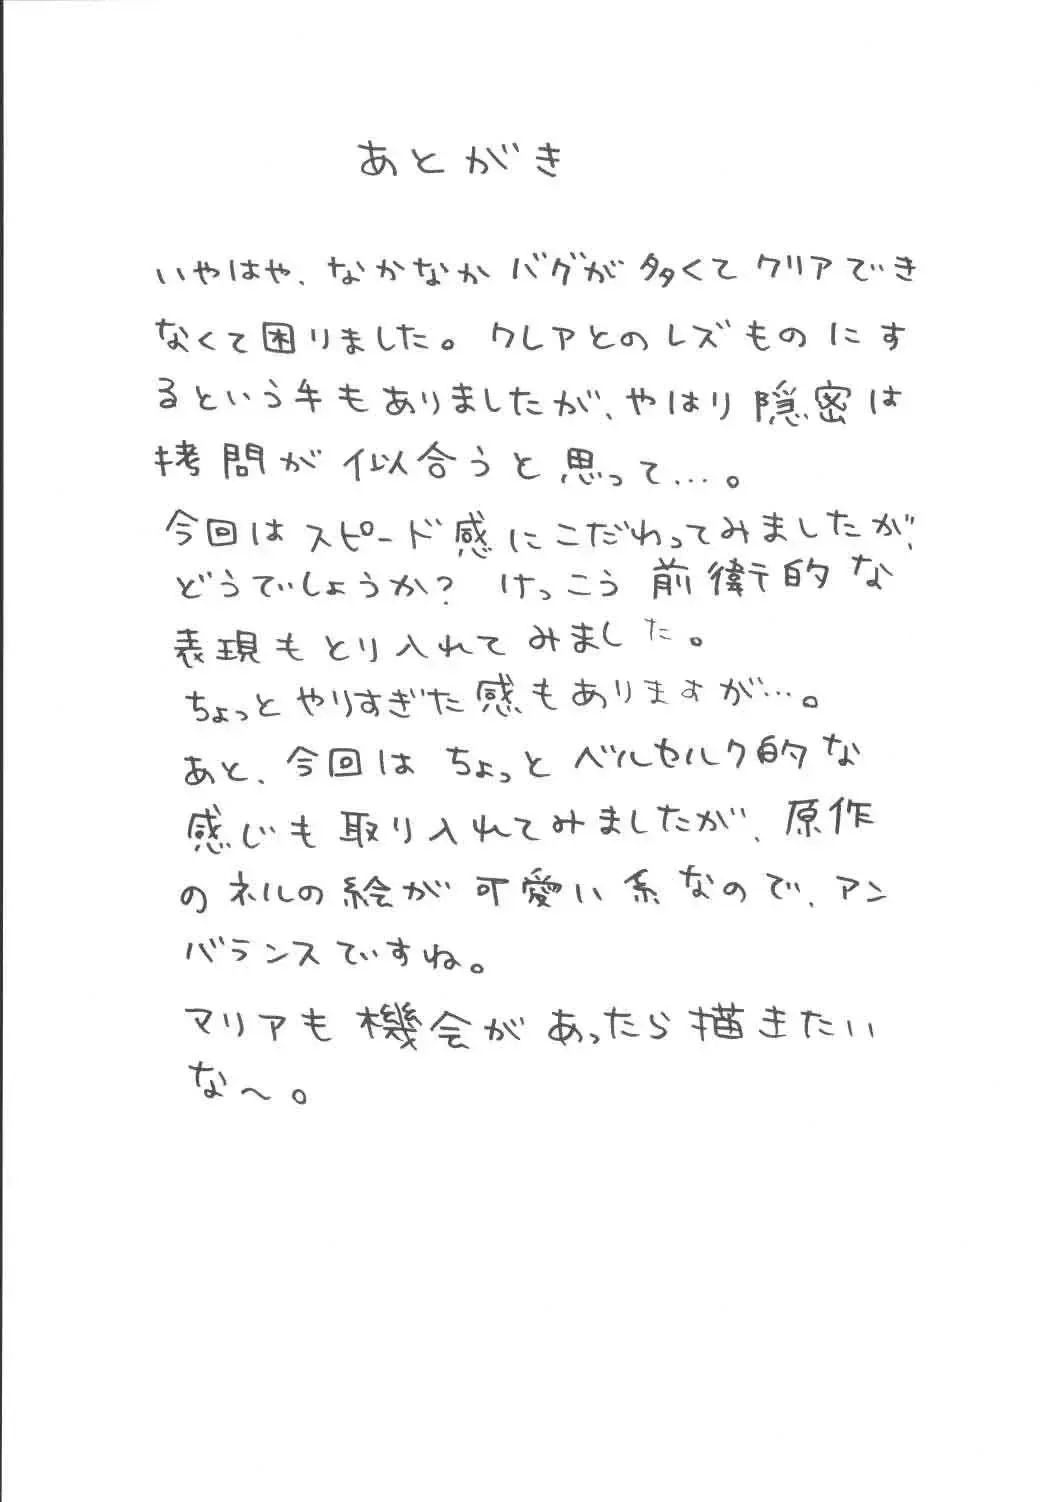 あとがき
いやはや、なかなかバグが多くてクリアでき
なくて困りました。クレアとのレズものにす
るという手もありましたが、やはり隠密は
拷問が似合うと思って…。
今回はスピード感にこだわってみましたが、
どうでしょうか?けっこう前衛的な
表現もとり入れてみました。
ちょっとやりすぎた感もありますが…。
あと、今回はちょっとベルセルク的な
感じも取り入れてみましたが、原作
のネルの絵が可愛い系なので、アン
バランスですね。
マリアも機会があったら描きたい
な〜。